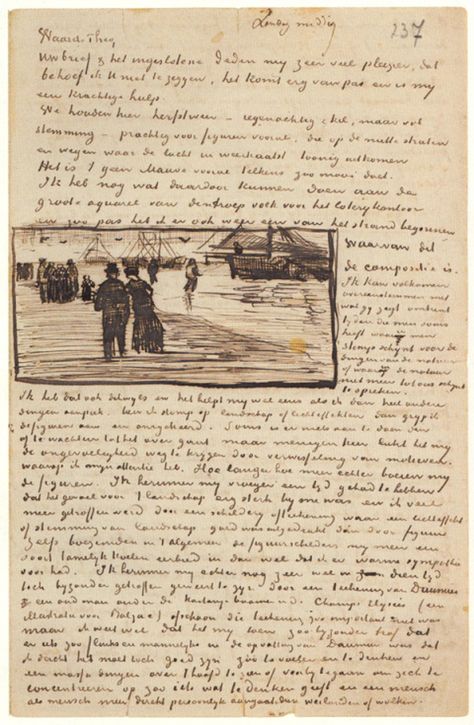 Zondag middag
237
Waarde Theo,
Uw brief & het ingeslotene deden mij zeer veel pleizier, dat
behoef ik U niet te zeggen, het komt erg van pas en is mij
een krachtige hulp.
We houden hier herfstweer – regenachtig & kil, maar vol
stemming – prachtig voor figuren vooral, die op de natte straten
en wegen waar de lucht in weerkaatst toonig uitkomen
Het is 't geen Mauve vooral telkens zoo mooi doet.
Ik heb nog wat daardoor kunnen doen aan de
groote aquarel van den troep volk voor het loterijkantoor
en zoo pas heb ik er ook weer een van het strand begonnen
waarvan dit
de compositie is.
Ik kan volkomen
overeenstemmen met
wat gij zegt omtrent
tijden die men soms
heeft waarin men
stomp schijnt voor de
dingen van de natuur
of waarin de natuur
niet meer tot ons schijnt
te spreken.
Ik heb dat ook dikwijls en het helpt mij wel eens als ik dan heel andere
dingen aanpak. Ben ik stomp op landschap of lichteffekten dan grijp ik
de figuren aan en omgekeerd. Soms is er niets aan te doen dan
af te wachten tot het over gaat maar menigen keer lukt het mij
de ongevoeligheid weg te krijgen door verwisseling van motieven
waarop ik mijn attentie heb. Hoe langer hoe meer echter boeien mij
de figuren. Ik herinner mij vroeger een tijd gehad te hebben
dat het gevoel voor 't landschap erg sterk bij me was en ik veel
meer getroffen werd door een schilderij of teekening waar een lichteffekt
of stemming van landschap goed was uitgedrukt dan door figuur
Zelfs boezemden in 't algemeen de figuurschilders mij meer een
soort tamelijk koelen eerbied in dan wel dat ik er warme sympathie
voor had. Ik herinner mij echter nog zeer wel in dien tijd
toch bijzonder getroffen geweest te zijn door een teekening van Daumier
een oud man onder de kastanjeboomen i.d. Champs Elysées (een
illustratie voor Balzac) ofschoon die teekening zoo important niet was
maar ik weet wel dat het mij toen zoo bijzonder trof dat
er iets zoo flinks en mannelijks in de opvatting van Daumier was dat
ik dacht het moet toch goed zijn zóó te voelen en te denken en
een massa dingen over 't hoofd te zien of voorbij te gaan om zich te
concentreren op zoo iets wat te denken geeft en een mensch
als mensch meer direct persoonlijk aangaat dan weilanden of wolken.